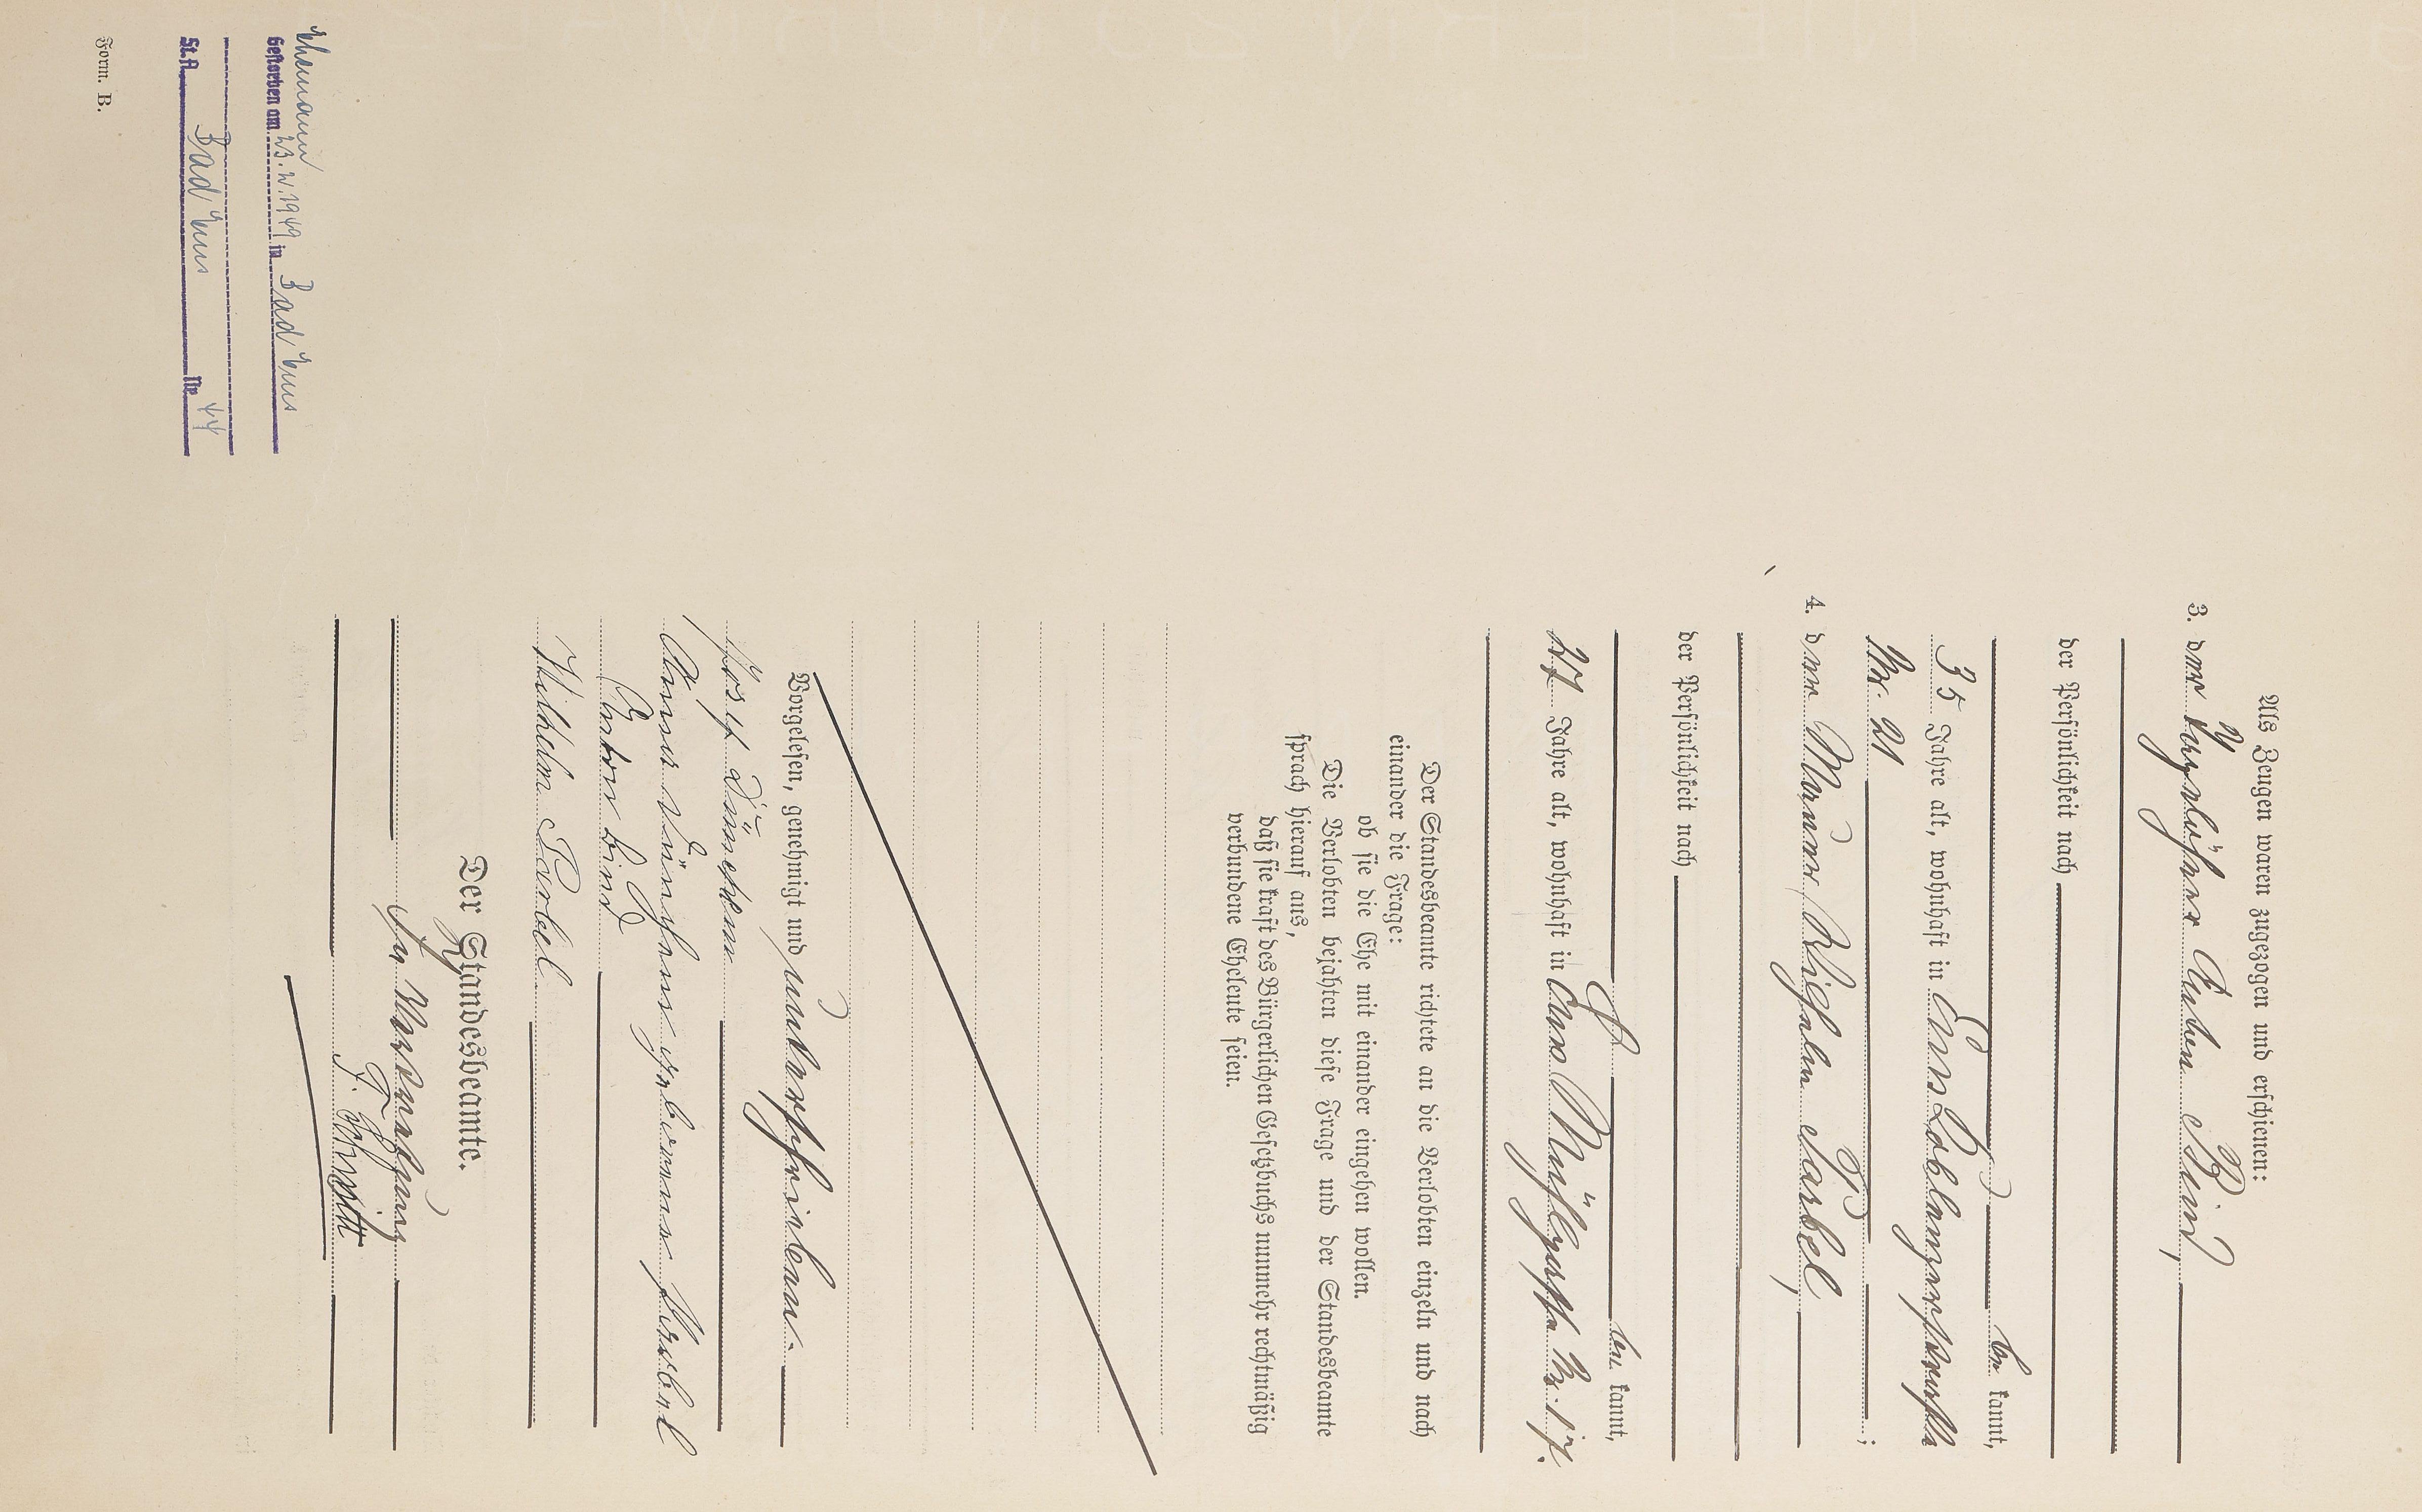 Als Zeugen waren zugezogen und erschienen:
3. der Tagelöhner Anton Bind,
der Persönlichkeit nach
be kannt,
35 Jahre alt, wohnhaft in Ems Coblenzerstraße
Nr. 21 ;
4. der Maurer Wilhelm Sarbel,
der Persönlichkeit nach
be kannt,
27 Jahre alt, wohnhaft in Ems Nr. 17.
Der Standesbeamte richtete an die Verlobten einzeln und nach
einander die Frage:
ob sie die Ehe mit einander eingehen wollen.
Die Verlobten bejahten diese Frage und der Standesbeamte
sprach hierauf aus,
daß sie kraft des Bürgerlichen Gesetzbuchs nunmehr rechtmäßig
verbundene Eheleute seien.
Vorgelesen, genehmigt und unterschrieben.
Josef
Anna geborene
Anton Bind
Wilhelm
Der Standesbeamte.
In Vertretung
F. Schmitt
Ehemann
Gestorben am 23.2.1949 in Bad Ems
St.A. Bad Ems Nr. 44
Form. B.